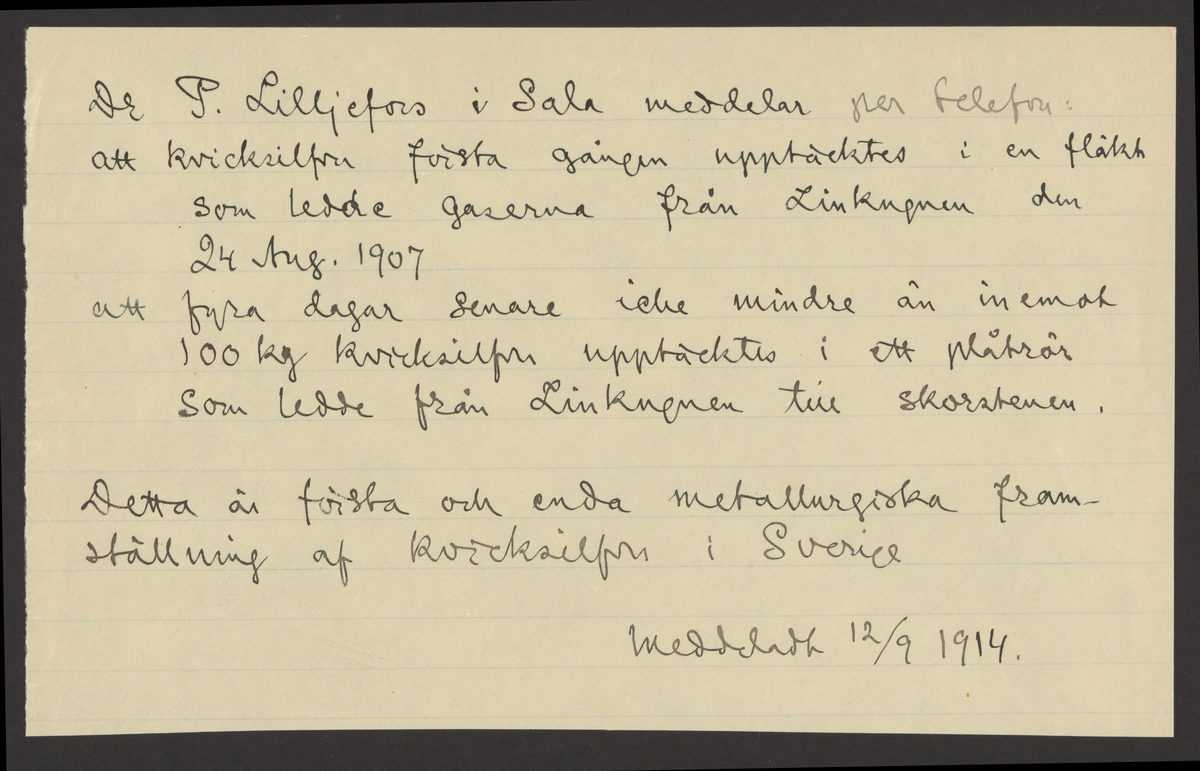 Dr P. Lilljefors i Sala meddelar per telefon:
att kvicksilfver första gången upptäcktes i en fläkt
som ledde gaserna från Zinkugnen den
24 Aug. 1907
att fyra dagar senare icke mindre än inemot
100 kg kvicksilfver upptäcktes i ett plåtrör
som ledde från Zinkugnen till skorstenen.
Detta är första och enda metallurgiska fram-
ställning af kvicksilfver i Sverige
Meddeladt 12/9 1914.